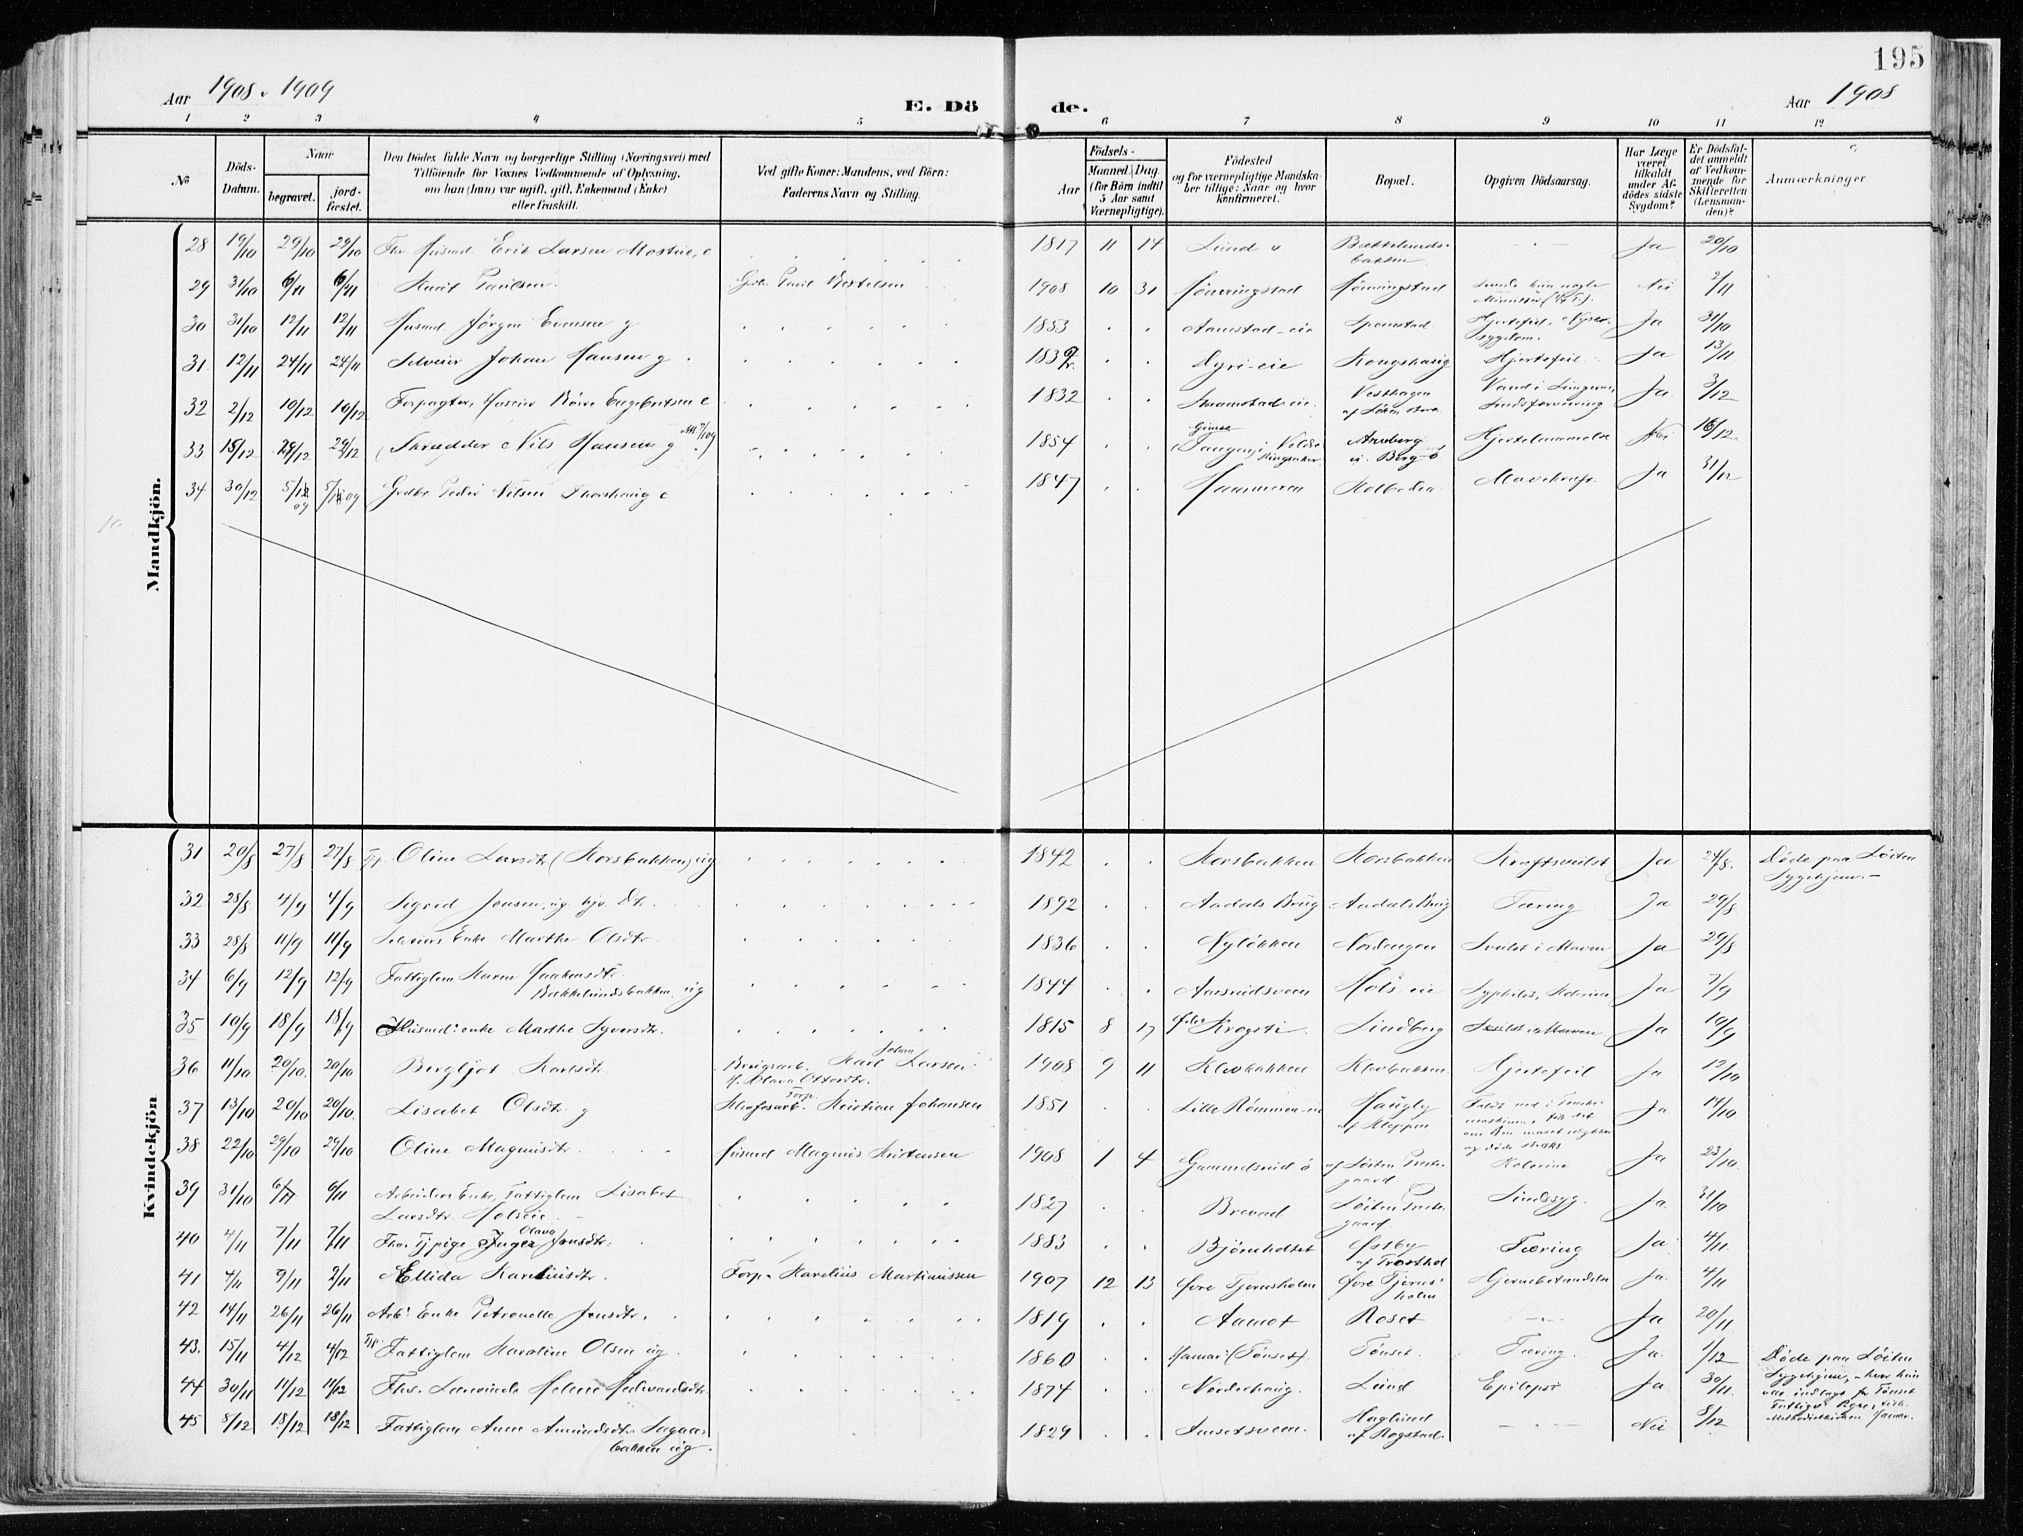 195
Aar 1908 & 1909
E. Döde.
Aar 1908
1 2 3 4 5 6 7 8 9 10 11 12
No
Döds-Datum.
Naar
begravet.
jord-fæstet.
Den Dödes fulde Navn og borgerlige Stilling (Næringsvei) med
Tilföiende for Voxnes Vedkommende af Oplysning,
om han (hun) var ugift, gift, Enkemand (Enke)
eller fraskilt.
Ved gifte Koner: Mandens, ved Börn:
Faderens Navn og Stilling.
Födsels-
Aar
Maaned. Dag.
(for Börn indtil
5 Aar samt
Værnepligtige).
Födested
og for værnepligtige Mandska-
ber tillige: Naar og hvor
konfirmeret.
Bopæl.
Opgiven Dödsaarsag.
Har Læge
været
tilkaldt
under Af-
dödes sidste
Sygdom?
Er Dödsfal-
det anmeldt
af Vedkom-
mende for
Skifteretten
(Lensman-
den)?
Anmærkninger
Mandkjön.
28 19/10 29/10 29/10 Erik Larsen 1817 11 14 Lund Bækkelunds-bakken Ja 20/10
29 31/10 6/11 6/11 Knut Paulsen Paul Bertelsen 1908 10 31 Hönningstad Hönningstad Nei 2/11
30 31/10 12/11 12/11 Husmd. Jörgen Evensen g 1853 Aamestad-eie Sponstad Hjertefeil, Nyre-sygdom. Ja 31/10
31 12/11 24/11 24/11 Selveier Johan Hansen g 1839 Dyri-eie Kongshaug Hjertefeil Ja 13/11
32 2/12 10/12 10/12 Forpagter, Börre Engebretsen e 1832 Skramstad-eie Vesthagen Vand i Lungerne, Ja 3/12
33 15/12 29/12 29/12 (Skrædder Nils Hansen g) 1854 Ringsaker Hjertelammelse Nei 16/12
34 30/12 5/1 09 5/1 09 Gbr. Peder Nilsen Thorshaug e 1847 Hammeren Kolbeden Mavekræft Ja 31/12
Kvindekjön
31 20/8 27/8 27/8 Tjp. Oline Larsdtr. (Korsbakken) ug 1842 Korsbakken Korsbakken Kræftsvulst Ja 24/8. Döde paa Löiten
Sygehjem.-
32 28/8 4/9 4/9 Sigrid Jensen, ug hjv. Dtr. 1892 Aadals Brug Aadals Brug Tæring Ja 29/8
33 28/8 11/9 11/9 Selveiers Enke Marthe Olsdtr. 1836 Nylökken Nordengen Svulst i Maven Ja 29/8
34 6/9 12/9 12/9 Fattiglem Karen Haakensdtr. Bækkelundsbakken ug 1844 Aarsrudsveen Hols-eie Syphilis, Ja 7/9
35 10/9 18/9 18/9 Husmd's enke Marthe Syversdtr. 1815 8 17 Krogsti Lindberg Svulst i Maven Ja 10/9
36 11/10 20/10 20/10 Bergljot Karlsdtr. Brugsarb. Karl Johan Larsen Olava Ottersdtr. 1908 9 11 Klevbakken Klevbakken Hjertefeil Ja 12/10
37 13/10 20/10 20/10 Lisabet Olsdtr. g Kristian Johansen 1851 Lille Römmen-eie Haugly Faldt ned i Træske-
maskinen, Ja 14/10
38 22/10 29/10 29/10 Oline Magnusdtr. Husmd Magnus Kristensen 1908 1 4 Gammelsrud ö af Löiten Præste-
gaard Kolerine Ja 23/10
39 31/10 6/11 6/11 Arbeiders Enke, Fattiglem Lisabet
Larsdtr. Holseie 1827 Brevad Löiten Præste-
gaard Lindssyg. Ja. 31/10
40 4/11 7/11 7/11 Fhv. Tjpige Inger Olava Jensdtr. 1883 Björnholtet Östby Tæring Ja 4/11
41 4/11 9/11 9/11 Ellida Kareliusdtr. Forp. Karelius Martinussen 1907 12 13 Övre Tjernsholm Övre Tjerns-
holm Hjernebetændelse Ja. 4/11
42 14/11 26/11 26/11 Arb's Enke Petronelle Jensdtr. 1819 Aamot Roset Ja 20/11
43. 15/11 4/12 4/12 Tjp. Fattiglem Karoline Olsen ug. 1860 Hamar (Tönset) Tönset Tæring. Ja 1/12 Döde paa Löiten
Sygehjem, - hvor hun
var indlagt fr Tönset
44 30/11 11/12 11/12 Fhv. Helene Hedvardsdtr. 1874 Norderhaug. Lund Epilepsi Ja 30/11
45 8/12 18/12 18/12 Fattiglem Anne Amundsdtr. Sagaa-
bakken ug. 1829 Imsetsveen Haglund
af Rogstad Nei 8/12